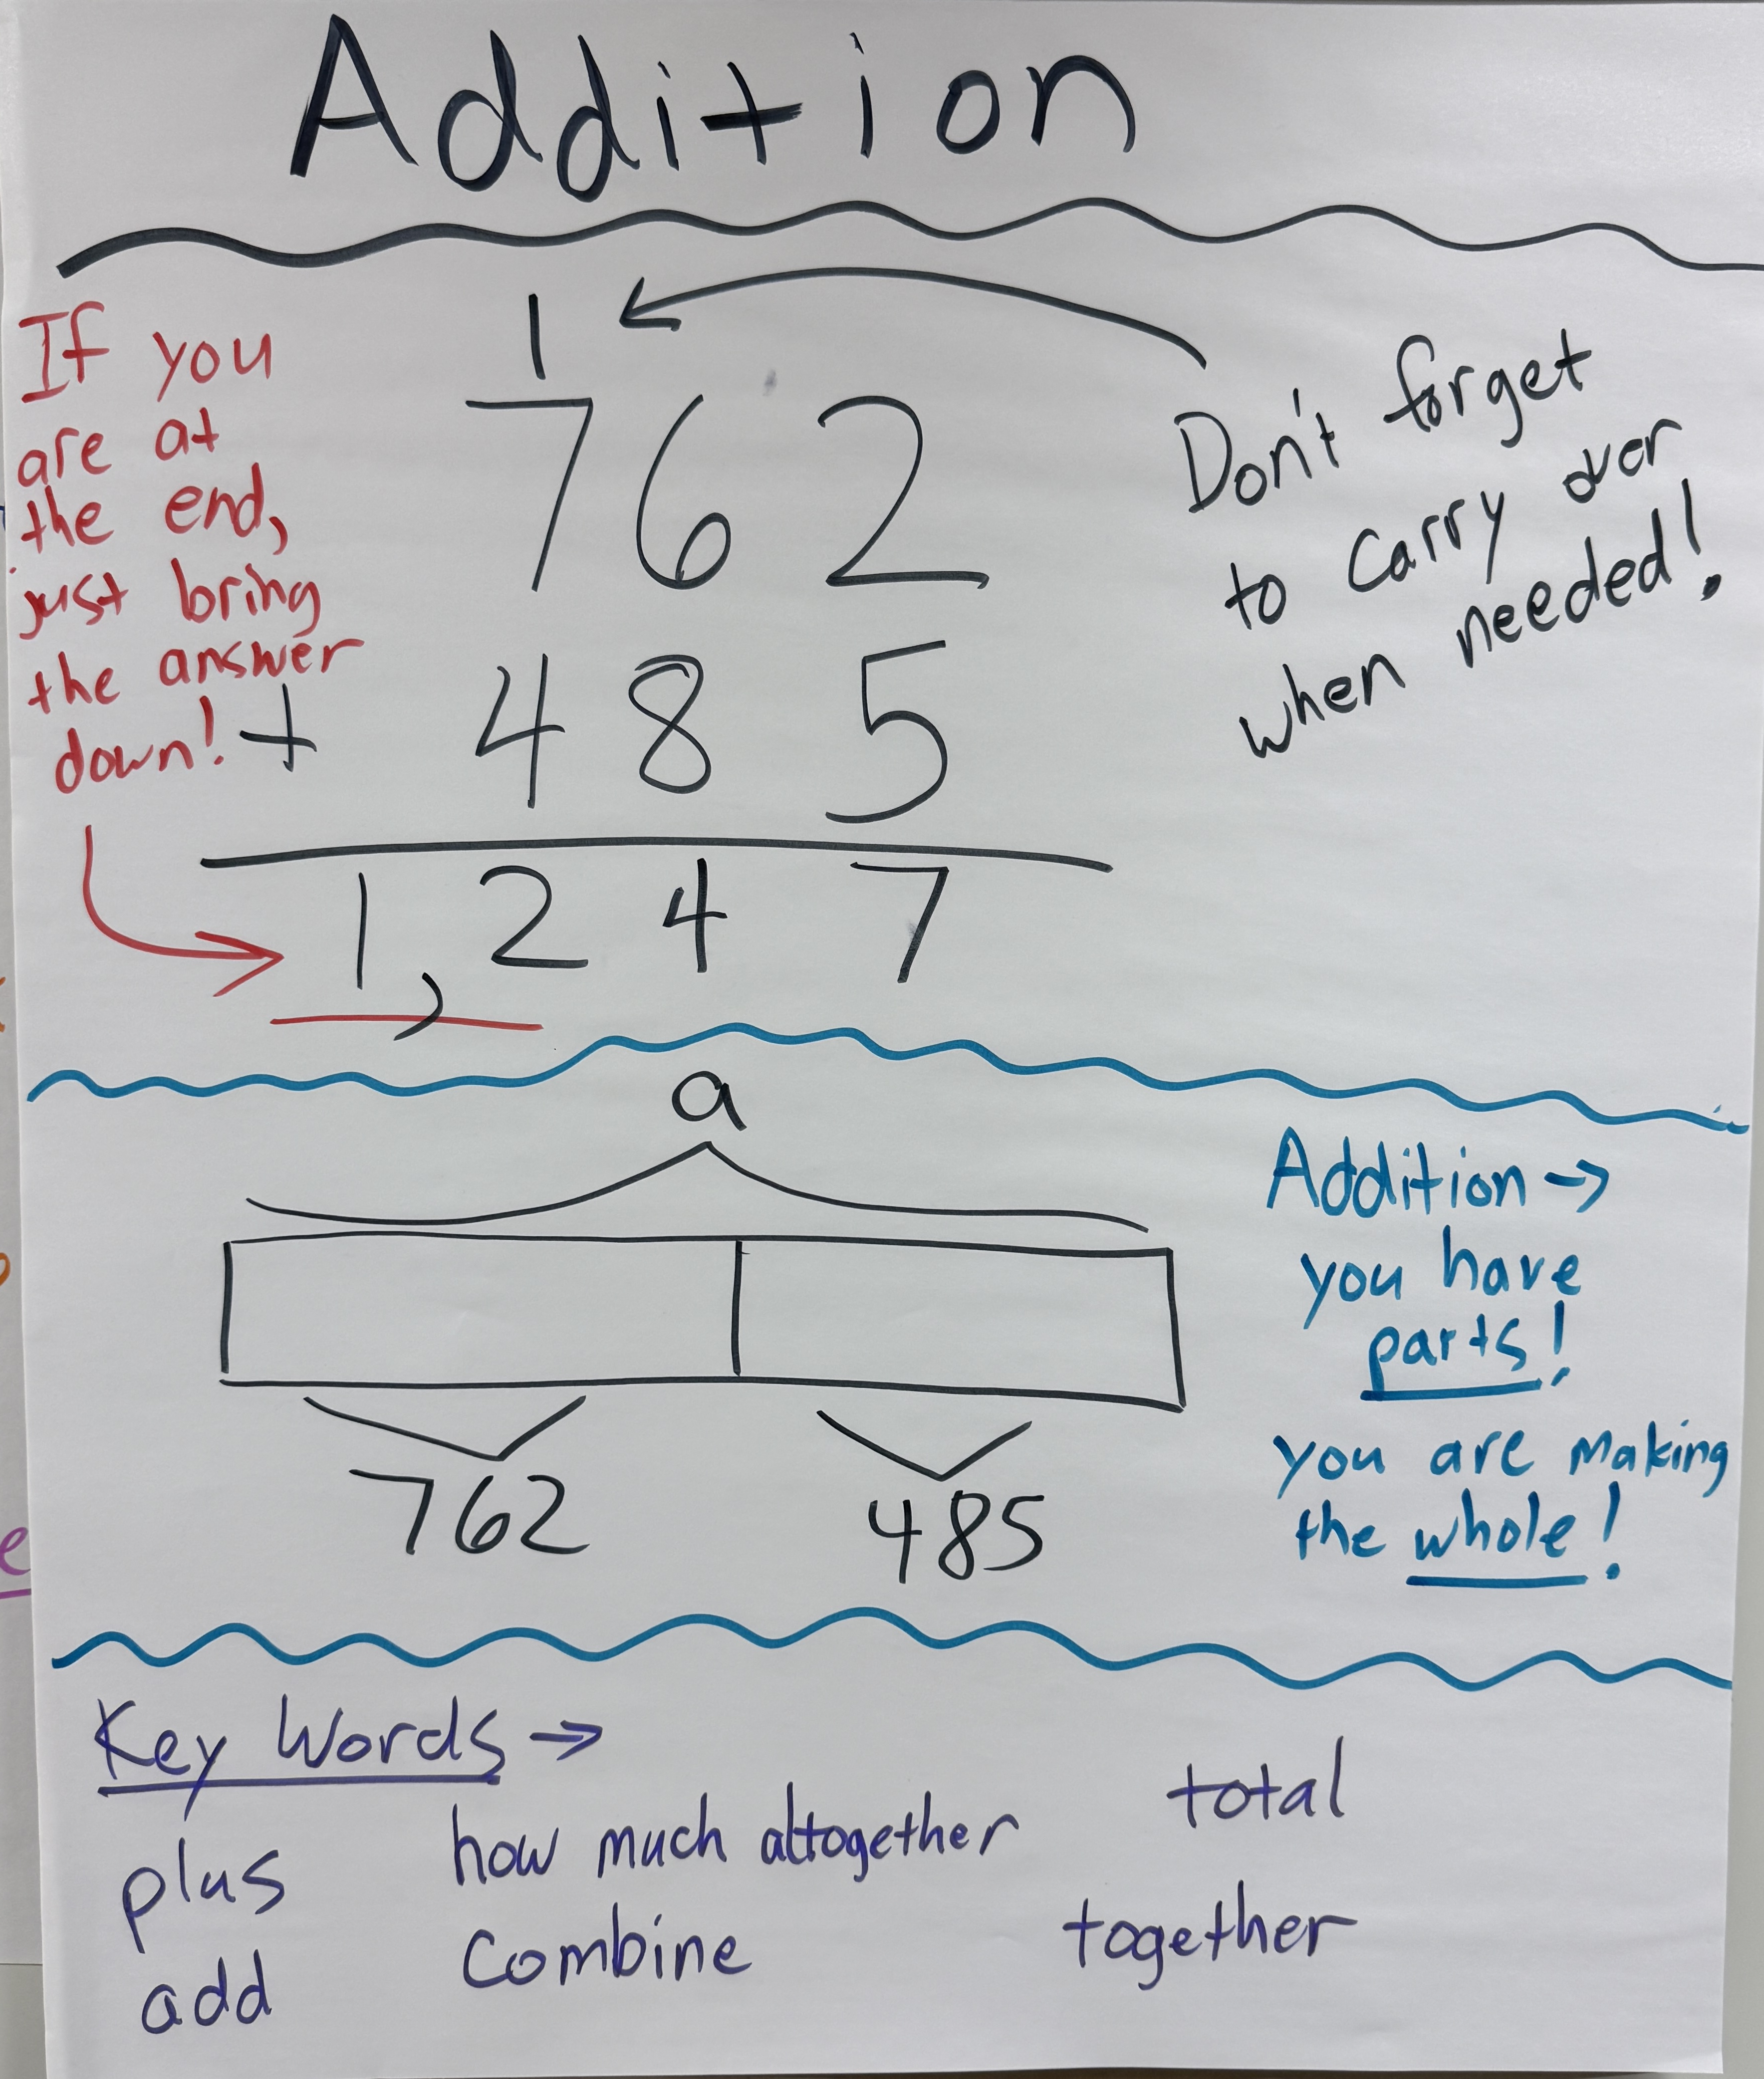 Addition
If you
are at
the end,
just bring
the answer
down!
1
762
+ 485
1,247
Don't forget
to carry over
when needed!
a
762
485
Addition →
you have
parts!
you are making
the whole!
Key Words →
plus
how much altogether
total
add
combine
together
e